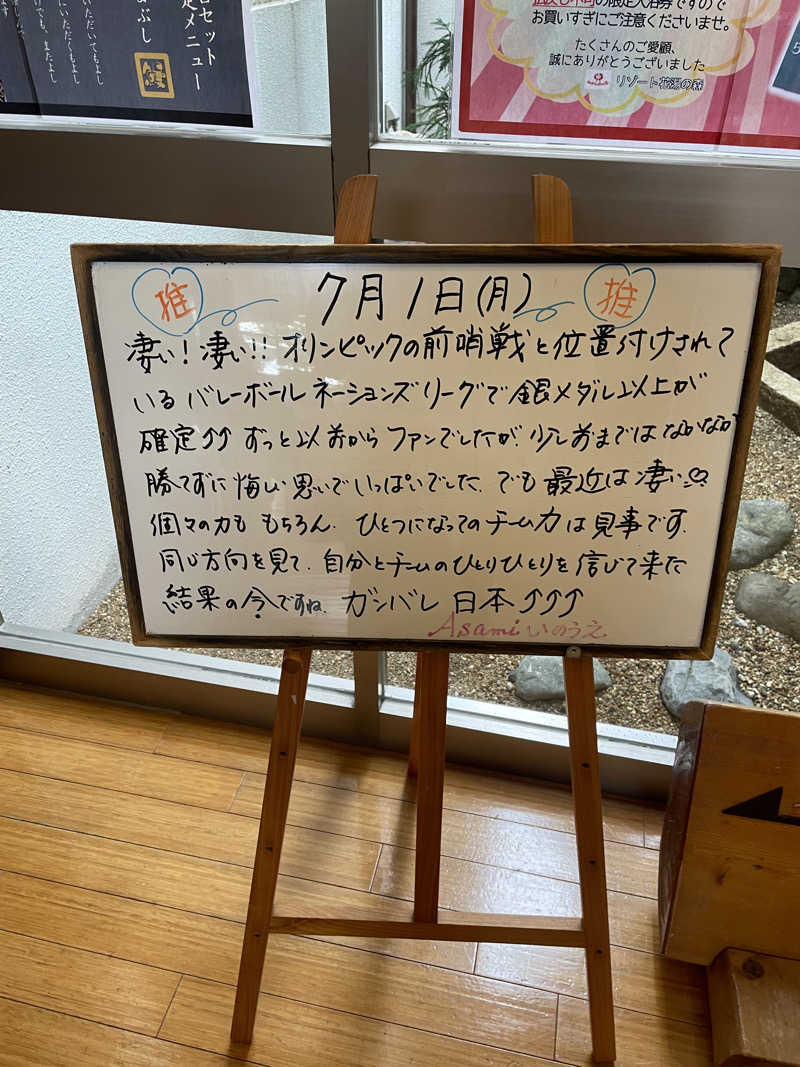 セット
定メニュー
まぶし
いただいてもよし
にいただくもよし
けでも、またよし
の限定入浴券ですので
お買いすぎにご注意くださいませ。
たくさんのご愛顧、
誠にありがとうございました
リゾート花湯の森
推 7月1日(月) 推
凄い!凄い!!オリンピックの前哨戦と位置付けされて
いるバレーボールネーションズリーグで銀メダル以上が
確定⤴⤴ずっと以前からファンでしたが、少し前まではなかなか
勝てずに悔しい思いでいっぱいでした、でも最近は凄い♡
個々の力ももちろん、ひとつになってのチーム力は見事です、
同じ方向を見て、自分とチームのひとりひとりを信じて来た
結果の今ですね、ガンバレ日本⤴⤴⤴
Asamiいのうえ